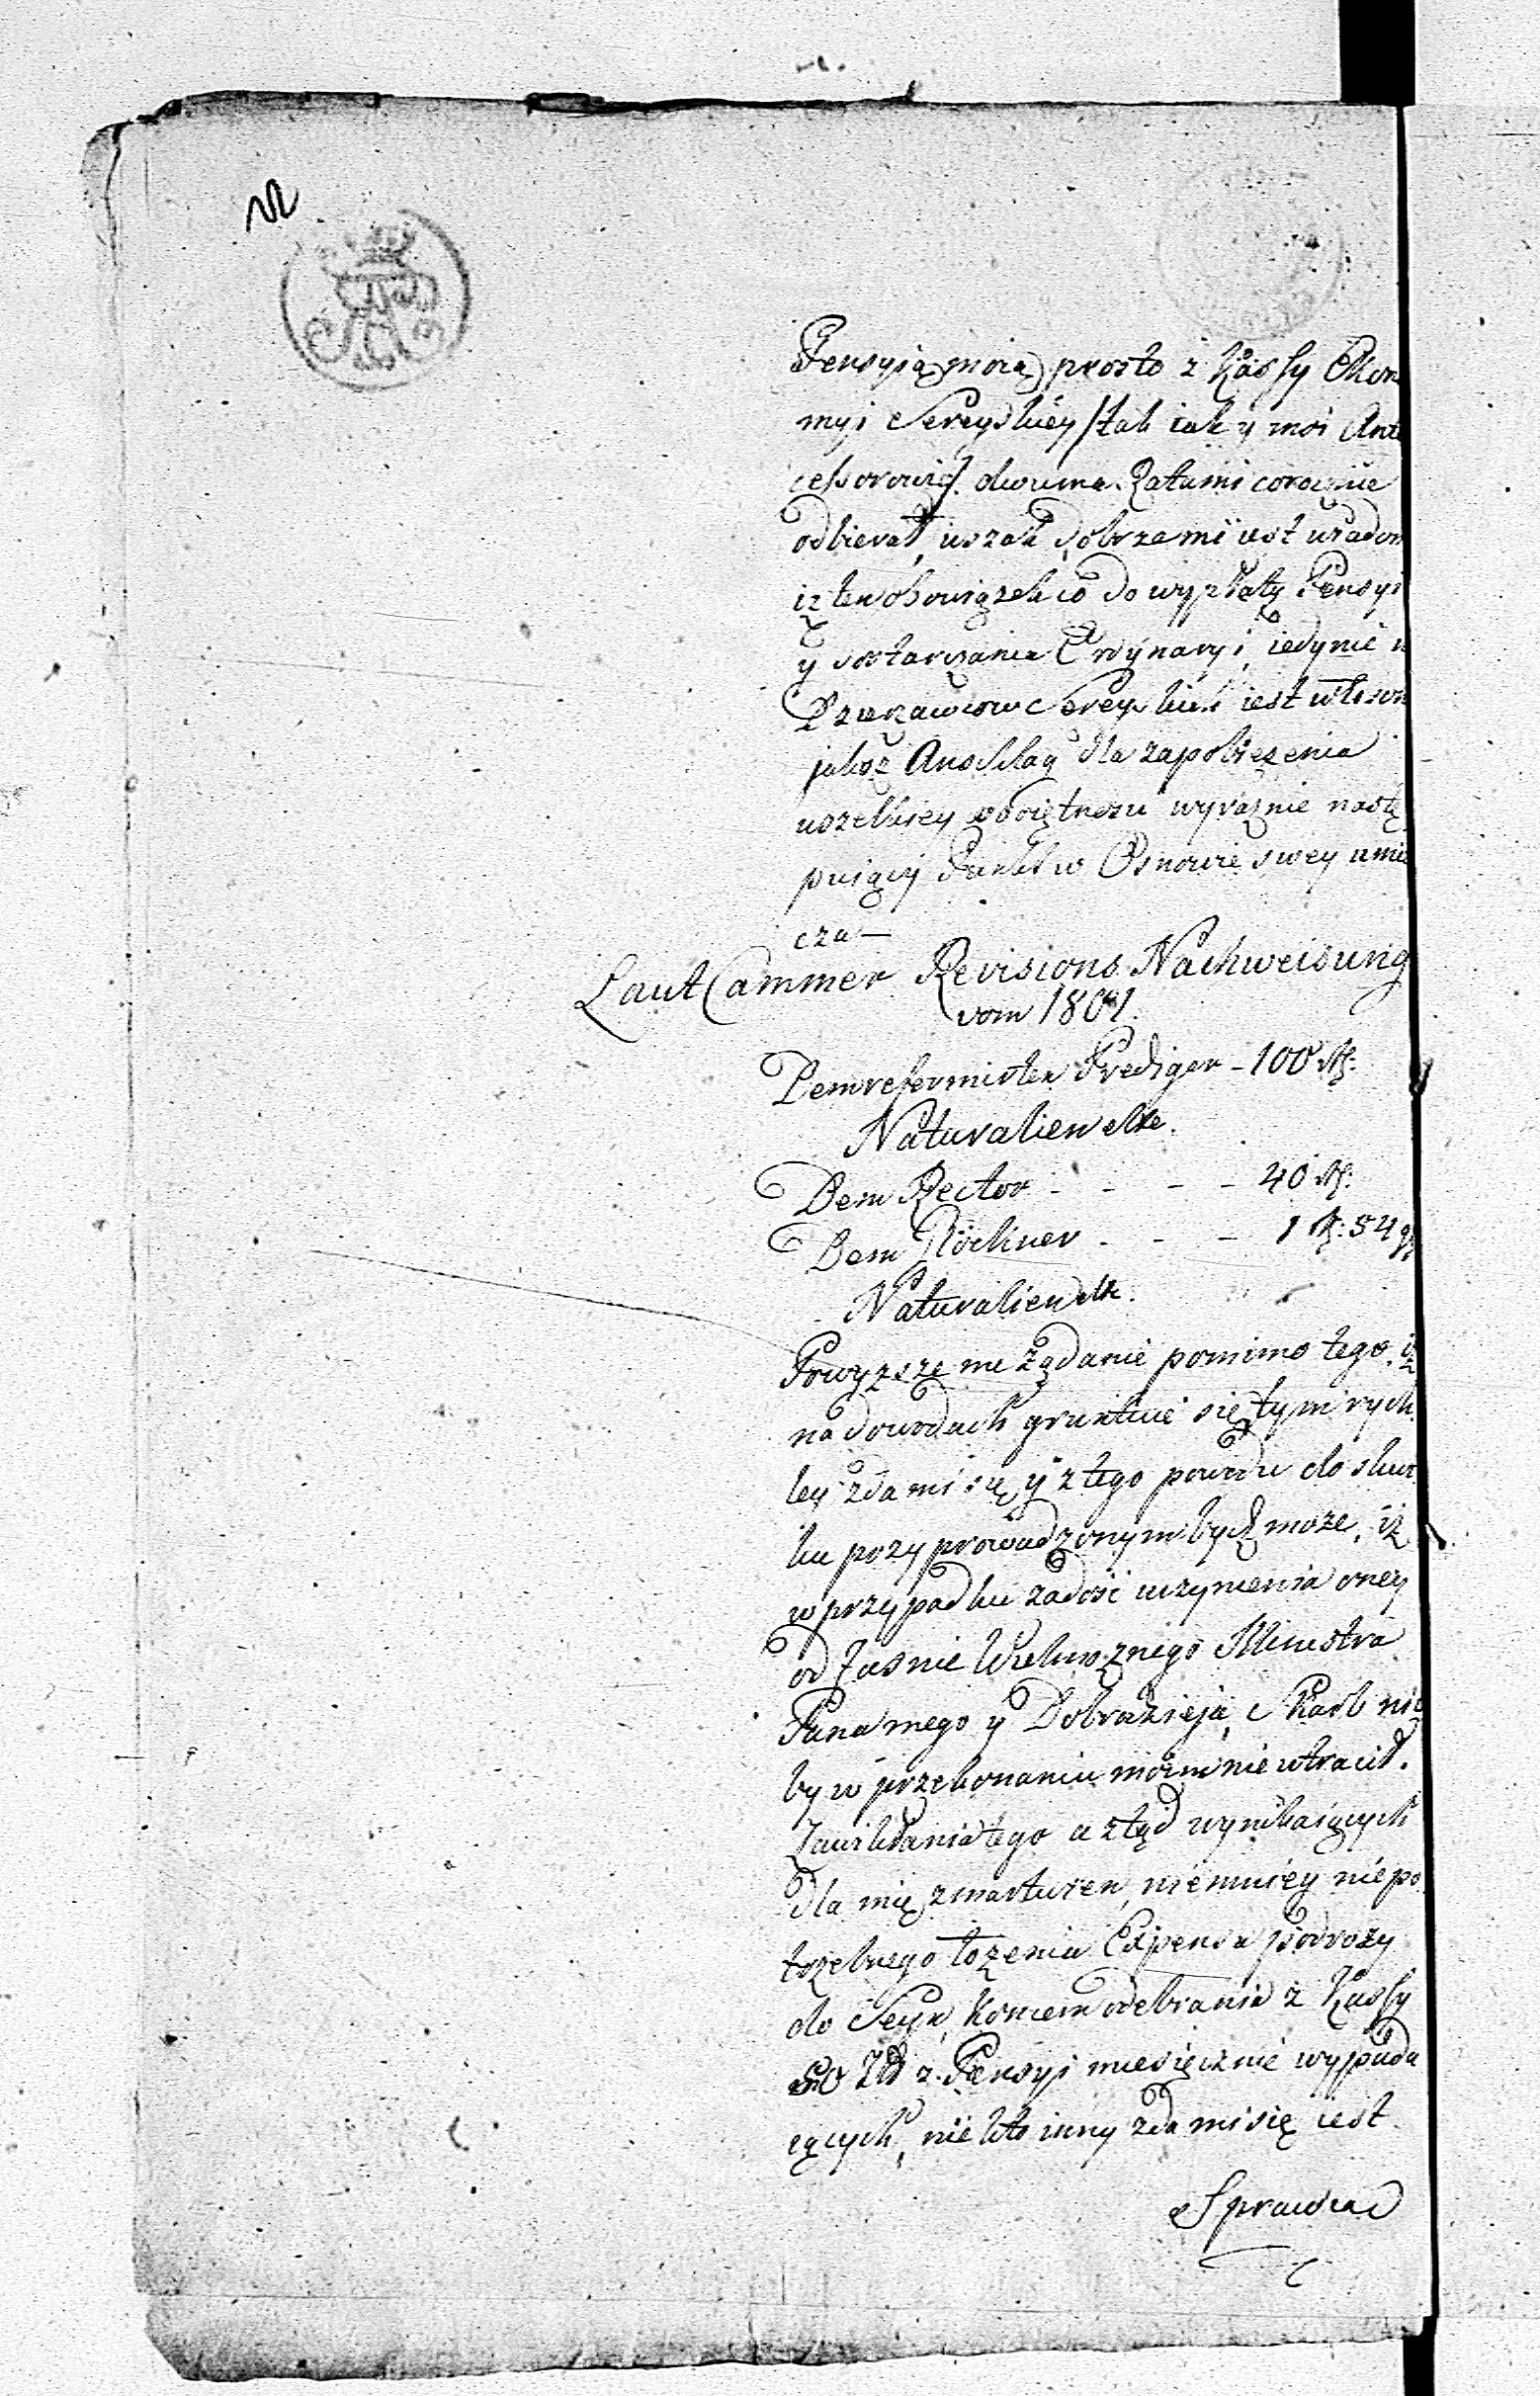 Pensyią moią prosto z Kassy Ekon
myi Sereyskiey /tak iak y moi Ante
cessorowie/ dwuma Ratami corocznie
odbierał, wszak dobrze mi iest wiadom
iż ten obowiązek co do wypłaty Pensyi
y dostarczania Ordynaryi, iedynie
Dzierzawcow Sereyskich iest włożon
jakoż Anschlag dla zapobieżenia
wszelkiey oboiętnosci wyraźnie nastę
puiący Punkt w Osnowie swey umie
cza —
Laut Cammer Revisions Nachweisung
vom 1801.
Dem reformirten Prediger - 100 Rth:
Naturalien etc.
Dem Rector - - - - 40 Rth:
Dem Glöckner - - - 1 Rth: 54 gr
Naturalien etc.
Powyższe me żądanie pomimo tego, iż
na dowodach gruntuie się, tym rych
ley zda mi się y z tego powodu do skut
ku przyprowadzonym bydź może, iż
w przypadku zadość uczynienia oney
od Jasnie Wielmożnego Ministra
Pana mego y Dobrodzieja, Skarb nic
by w przekonaniu moim nie utracił.
Zawikłania tego a ztąd wynikaiących
dla mię zmartwień, niemniey niepo
trzebnego łożenia Expensa podroży
do Seyn, koncem odebrania z Kassy
50 Zł z Pensyi miesięcznie wypada
iących, nie kto inny zda mi się iest
Sprawcą